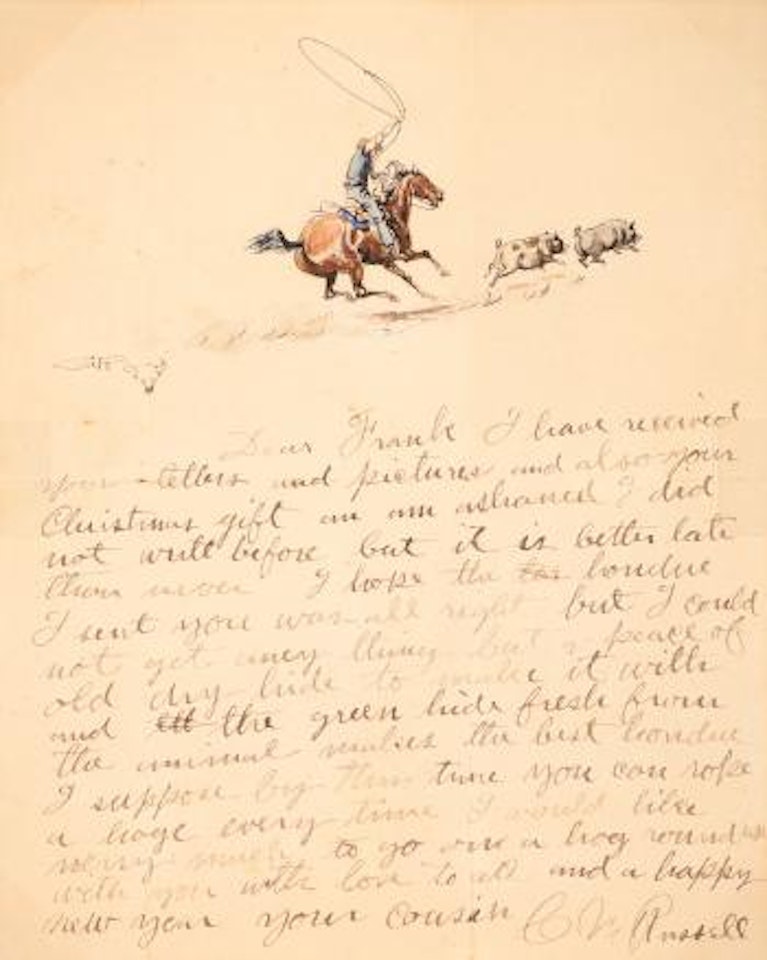 Dear Frank I have received
your letters and pictures and also your
Christmas gift an am ashamed I did
not write before but it is better late
than never I hope the hondue
I sent you was all right but I could
not get aney thing but a peace of
old dry hide to make it with
and the green hide fresh from
the animal makes the best hondue
I suppose by this time you can rope
a hoge every time I would like
verry much to go on a hog roundup
with you with love to all and a happy
new year your cousin C M Russell